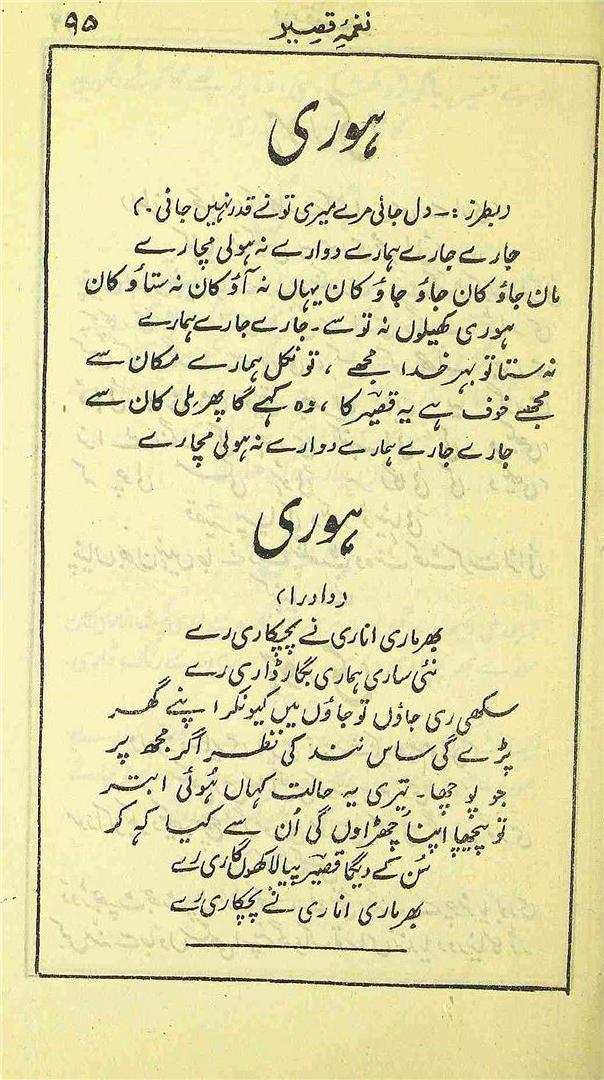 نغمۂ قصیر
۹۵
ہوری
(بطرز:- دل جانی مرے میری تونے قدر نہیں جانی.)
جارے جارے ہمارے دوارے نہ ہولی مچارے
مان جاؤ کان جاؤ جاؤ کان یہاں نہ آؤ کان نہ ستاؤ کان
ہوری کھیلوں نہ توسے۔ جارے جارے ہمارے
نہ ستا تو بہر خدا مجھے، تو نکل ہمارے مکان سے
مجھے خوف ہے یہ قصیرؔ کا، وہ کہے گا پھر ملی کان سے
جارے جارے ہمارے دوارے نہ ہولی مچارے
ہوری
(دادرا)
بھر ماری اناری نے پچکاری رے
نئی ساری ہماری بگار ڈاری رے
سکھی ری جاؤں تو جاؤں میں کیونکر اپنے گھر
پڑے گی ساس نند کی نظر اگر مجھ پر
جو پوچھا۔ تیری یہ حالت کہاں ہوئی ابتر
تو پیچھا اپنا چھڑاوں گی اُن سے کیا کہہ کر
سُن کے دیگا قصیرؔ پیا لاکھوں گاری رے
بھر ماری اناری نے پچکاری رے